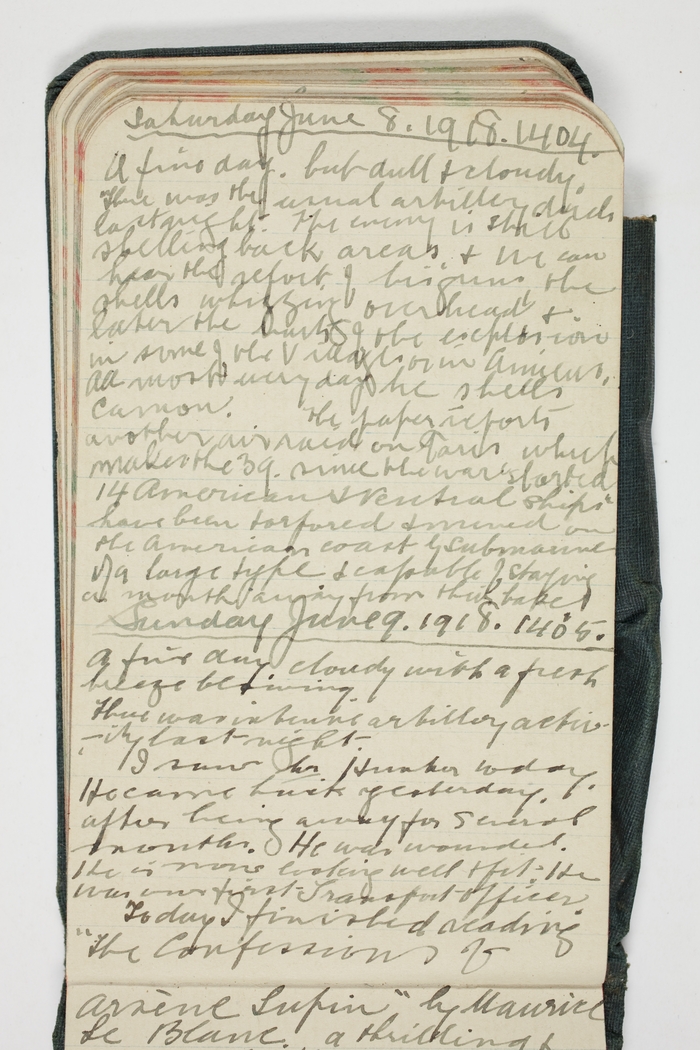 Saturday June 8. 1918. 1404.
A fine day. but dull & cloudy.
There was the usual artillery duels
last night. The enemy is still
shelling back areas & we can
hear the report of big guns, the
shells whizzing overhead &
later the burst of the explosion
in some of the villages or in Amiens.
Almost every day he shells
Camon. The paper reports
another air raid on Paris which
makes the 39. since the war started
14 American & Neutral ships
have been torpored & mined on
the American coast by submarine
of a large type & capable of staying
a month away from their base
Sunday June 9. 1918. 1405.
A fine day, cloudy with a fresh
breeze blowing.
There was intense artillery activ-
-ity last night.
I saw Hunter today.
He came back yesterday.
after being away for several
months. He was wounded.
He is now looking well & fit. He
was our first Transport Officer
Today I finished reading
"The Confessions of
Arsène Lupin" by Maurice
Le Blanc. a thrilling &